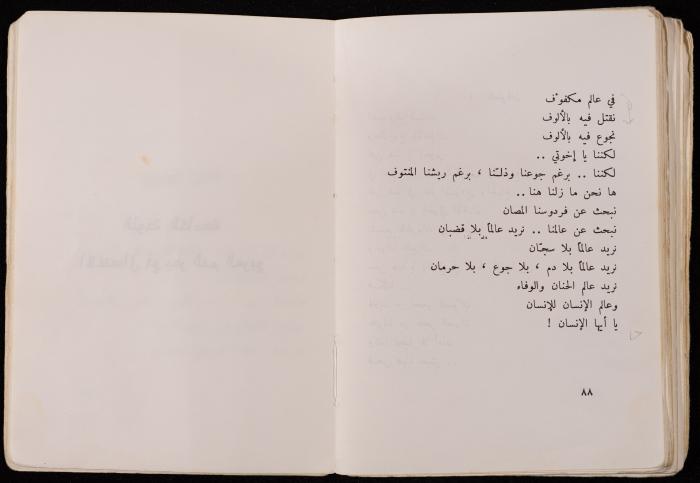 في عالم مكفوف
نقتل فيه بالألوف
نجوع فيه بالألوف
لكننا يا إخوتي ..
لكننا .. برغم جوعنا وذلتنا ، برغم ريشنا المنتوف
ها نحن ما زلنا هنا ..
نبحث عن فردوسنا المصان
نبحث عن عالمنا .. نريد عالماً بلا قضبان
نريد عالماً بلا سجّان
نريد عالماً بلا دم ، بلا جوع ، بلا حرمان
نريد عالم الحنان والوفاء
وعالم الإنسان للإنسان
يا أيها الإنسان !
٨٨